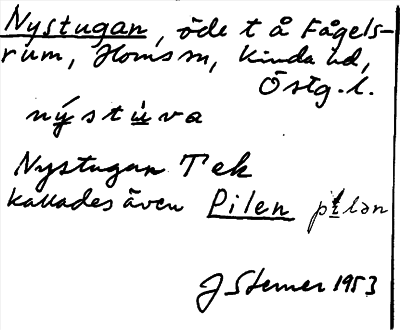 Nystugan, öde t å Fågels-
rum, Horns sn, Kinda hd,
Östg.l.
nýstùva
Nystugan Tek
kallades även Pilen pilən
J Sterner 1953